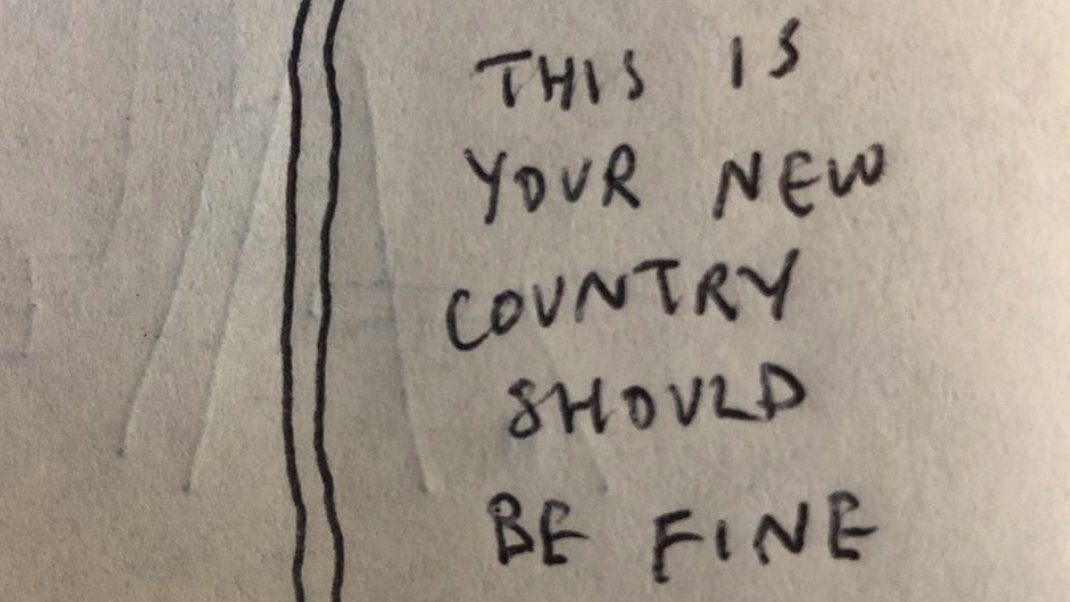 THIS IS
YOUR NEW
COUNTRY
SHOULD
BE FINE